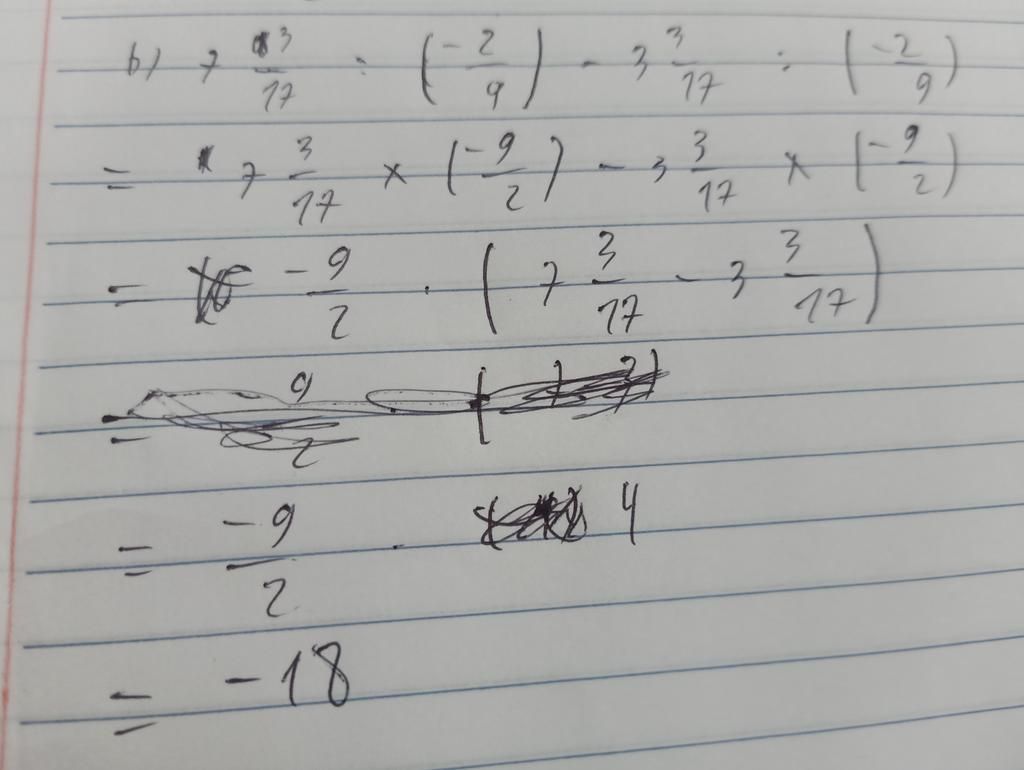 b) 7 3/17 : (-2/9) - 3 3/17 : (-2/9)
= 7 3/17 × (-9/2) - 3 3/17 × (-9/2)
= -9/2 . (7 3/17 - 3 3/17)
=
= -9/2 . 4
= -18